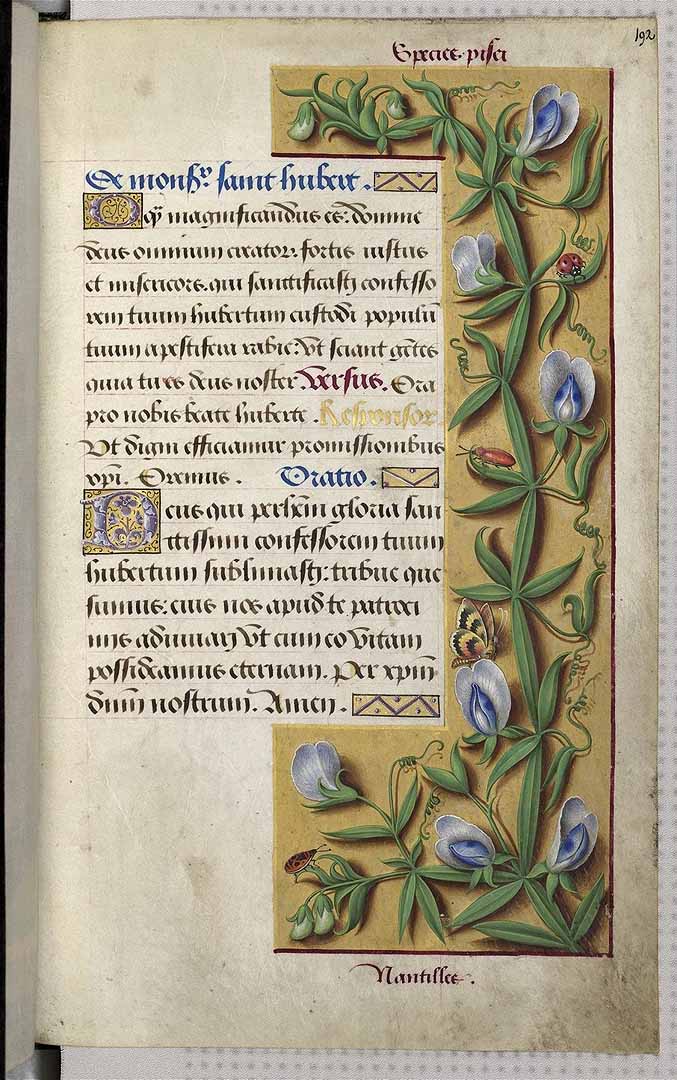 192
Species pisci
De monsr. saint hubert.
Oq̄ magnificandus es: domine
deus omnium creator. fortis iustus
et misericors. qui sanctificasti confesso
rem tuum hubertum custodi populū
tuum a pestifera rabie: Vt sciant gētes
quia tu es deus noster. Versus. Ora
pro nobis beate huberte. Responsor
Vt digni efficiamur promissionibus
xp̄i. Oremus. Oratio.
Deus qui perhēni gloria san
ttissimum confessorem tuum
hubertum sublimasti: tribue que
sumus: eius nos apud te patroci
niis adiuuari Vt cum eo Vitam
possideamus eternam. Per xp̄m
dn̄m nostrum. Amen.
Nantilles.